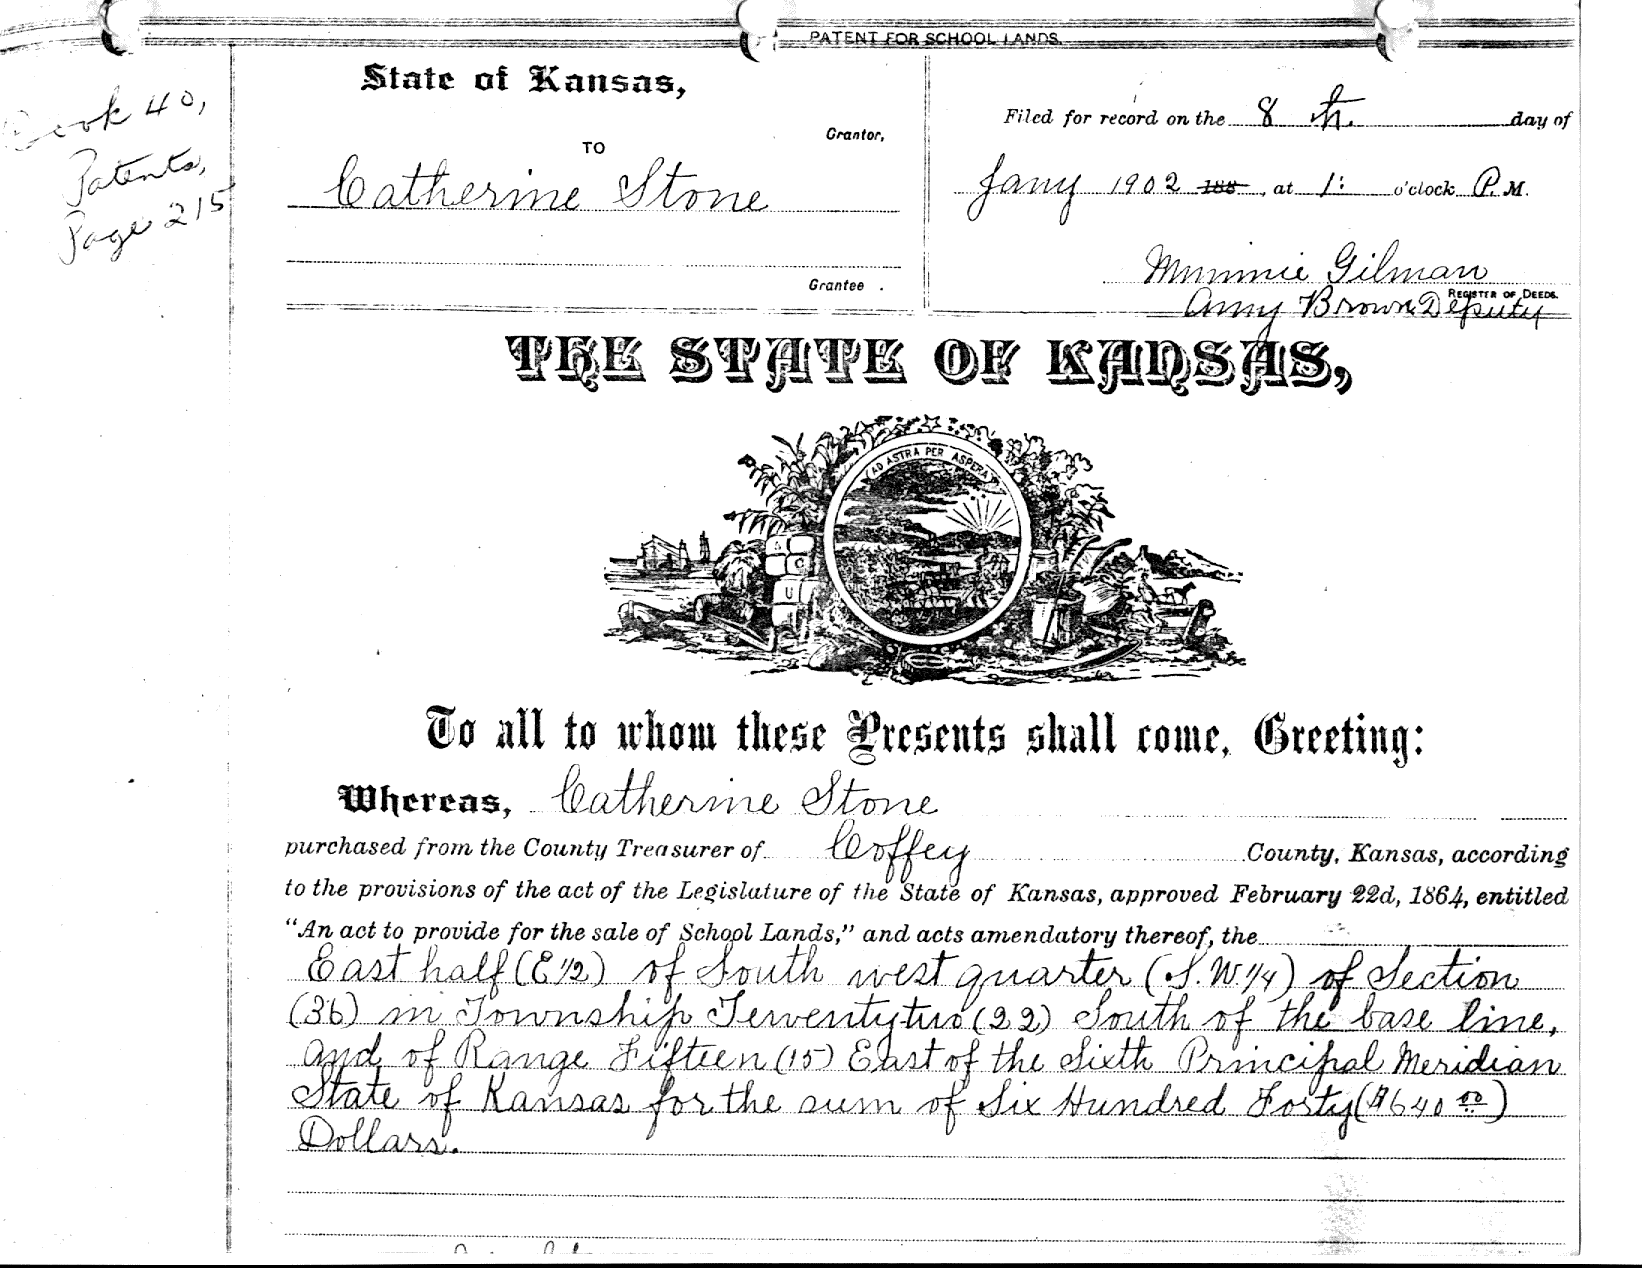 PATENT FOR SCHOOL LANDS.
Book 40,
Patents,
Page 215
State of Kansas,
Grantor,
TO
Catherine Stone
Grantee .
Filed for record on the 8 th. day of
Jany 1902 188 , at 1: o'clock P. M.
Minnie Gilman
REGISTER OF DEEDS.
Amy Brown Deputy
THE STATE OF KANSAS,
AD ASTRA PER ASPERA
To all to whom these Presents shall come, Greeting:
Whereas, Catherine Stone
purchased from the County Treasurer of Coffey County, Kansas, according
to the provisions of the act of the Legislature of the State of Kansas, approved February 22d, 1864, entitled
"An act to provide for the sale of School Lands," and acts amendatory thereof, the
East half (E 1/2) of South west quarter (S.W. 1/4) of Section
(36) in Township Tewentytwo (22) South of the base line,
and of Range Fifteen (15) East of the Sixth Principal Meridian
State of Kansas for the sum of Six Hundred Forty ($640 00)
Dollars.